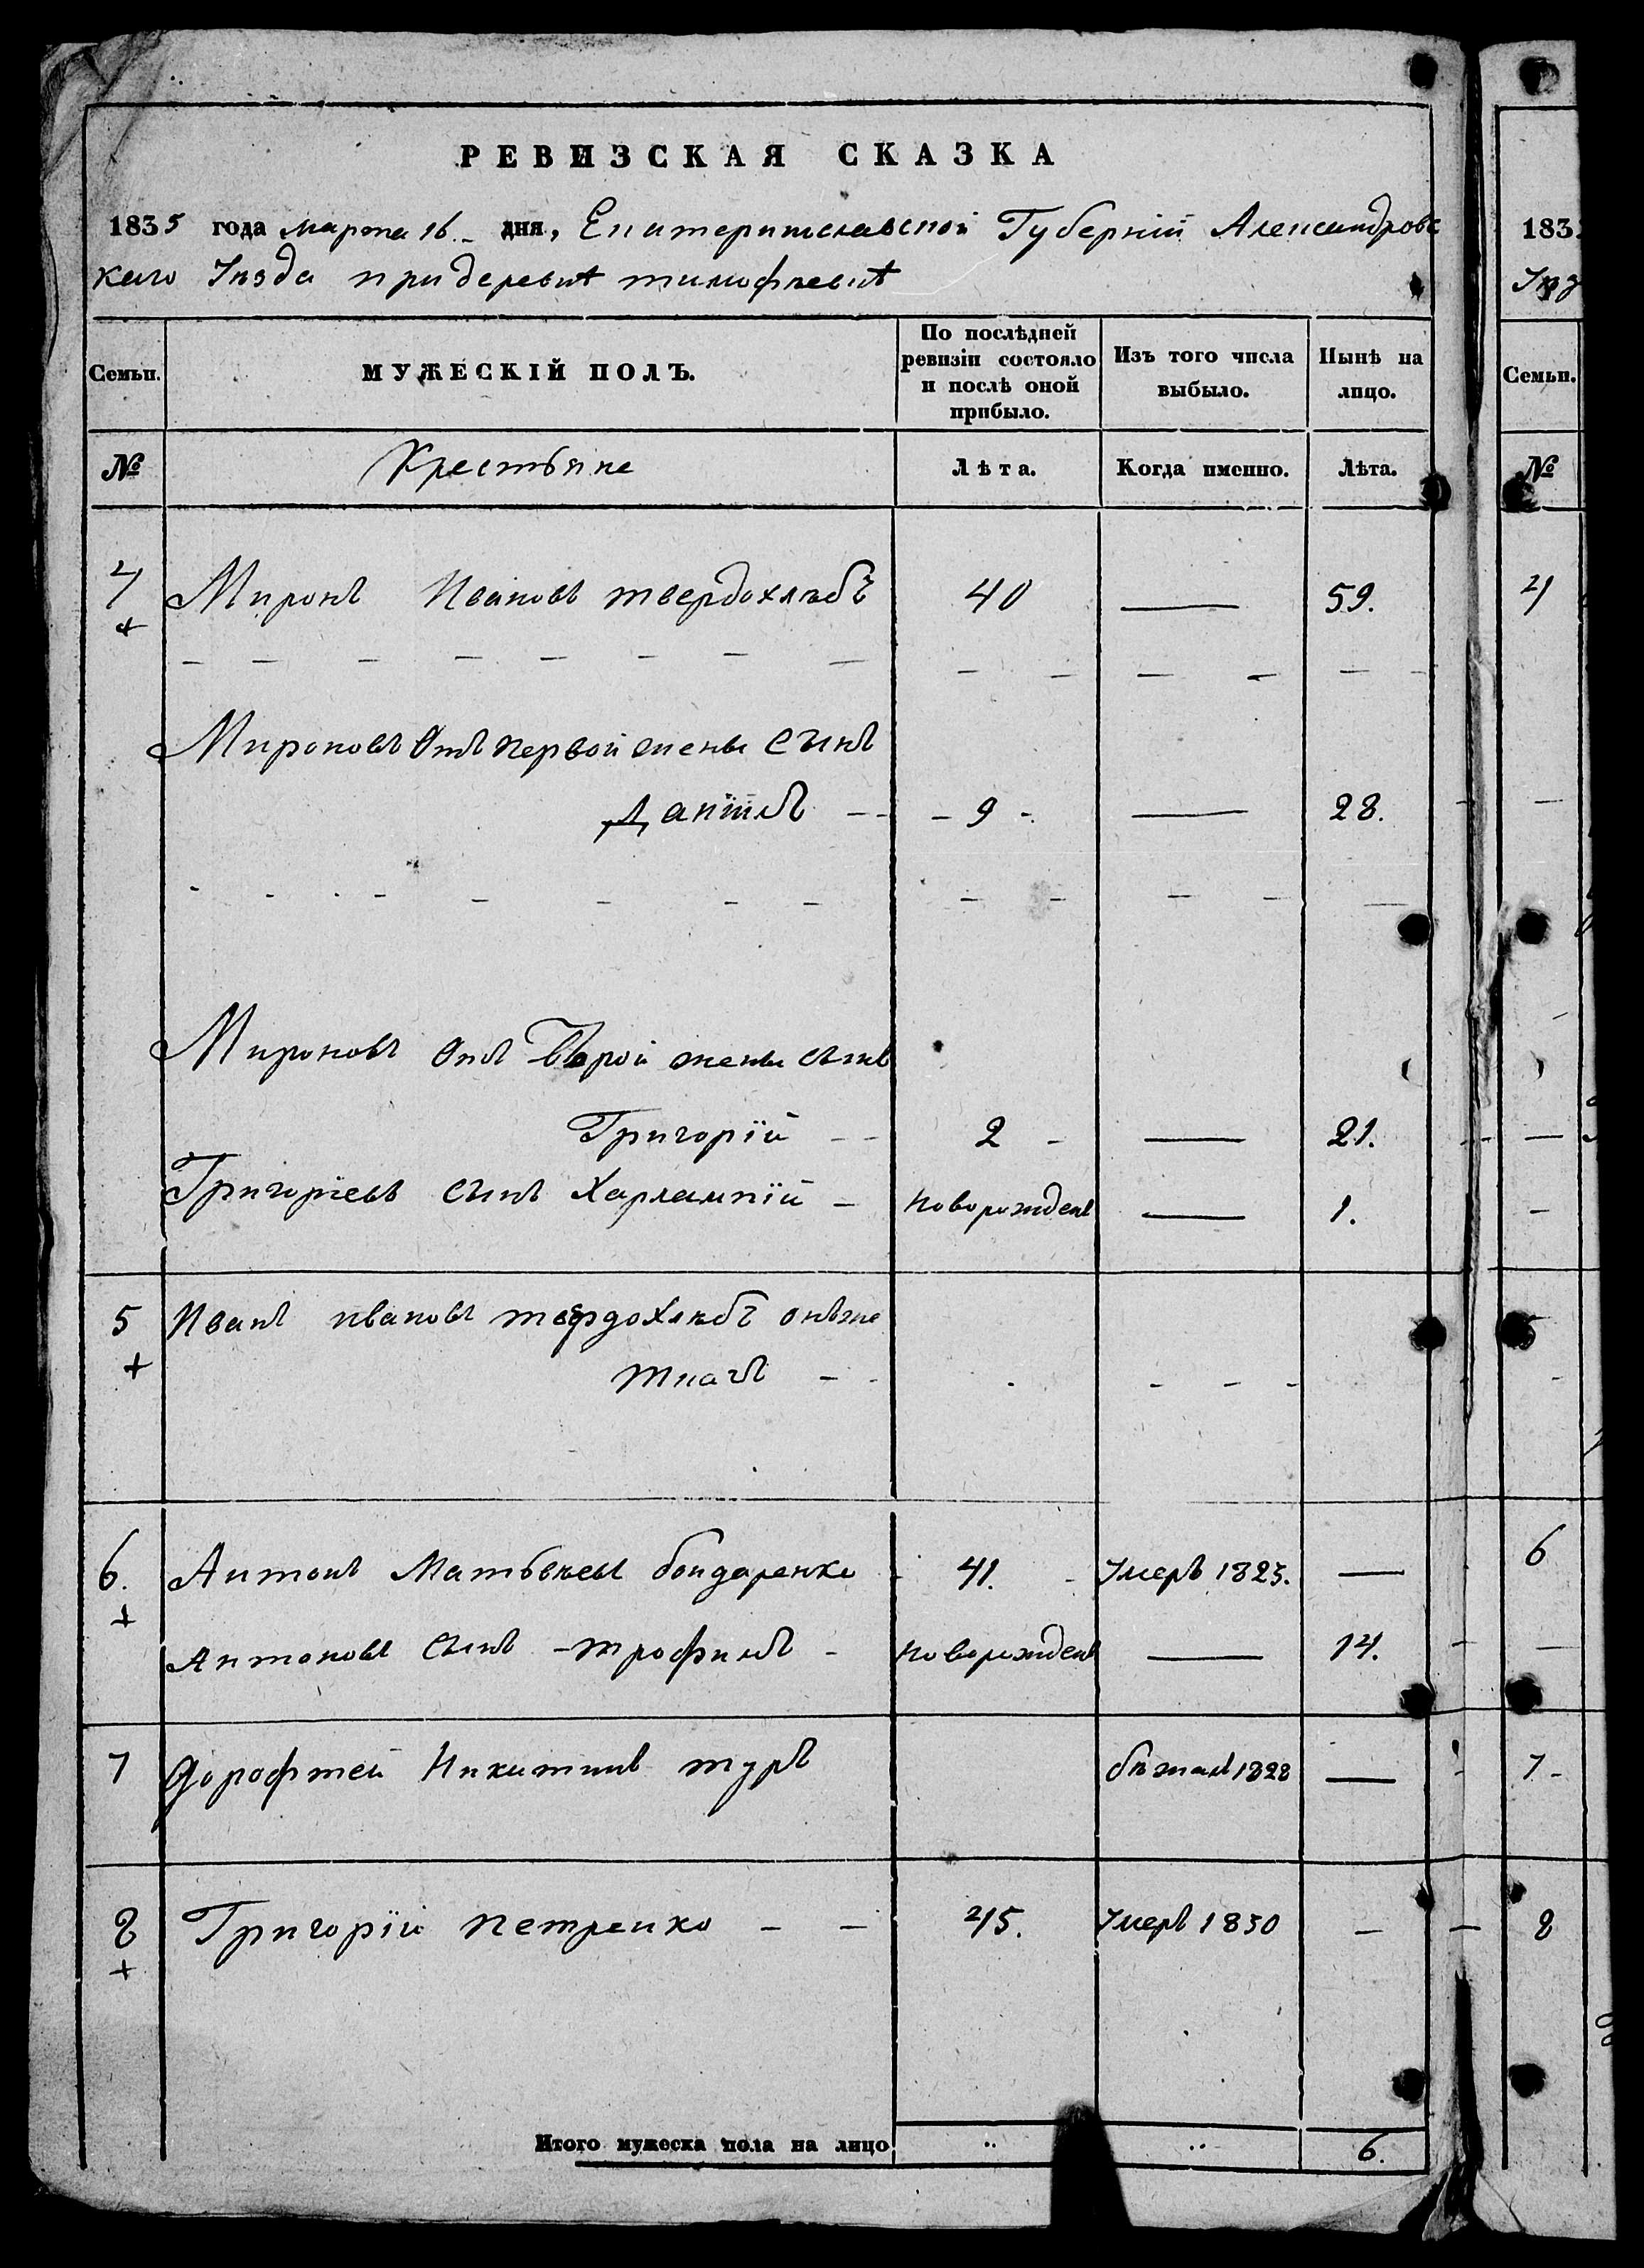 РЕВИЗСКАЯ СКАЗКА
1835 года марта 16 дня, Екатеринославской Губерніи Александровс
каго Уѣзда при деревнѣ тимофѣевнѣ
Семьи. МУЖЕСКІЙ ПОЛЪ. По послѣдней ревизіи состояло и послѣ оной прибыло. Изъ того числа выбыло. Нынѣ на лицо.
№ Крестьяне Лѣта. Когда именно. Лѣта.
4 Миронъ Ивановъ твердохлѣбъ 40 — 59.
Мироновъ Отъ первой жены сынъ
Даніилъ 9 — 28.
Мироновъ Отъ Второй жены сынъ
Григорій 2 — 21.
Григорїевъ сынъ Харлампїй новорожденъ — 1.
5 Иванъ ивановъ твердохлѣбъ онъже
ткачъ
6. Антонъ Матвѣевъ бондаренко 41. Умеръ 1825. —
Антоновъ сынъ трофимъ новорожденъ — 14.
7 Дорофтей Никитинъ туръ бѣжалъ 1828 —
8 Григорїй петренко 45. Умеръ 1830 —
Итого мужеска пола на лицо 6.
183
Уѣз
Семьи.
№
4
6
7
8